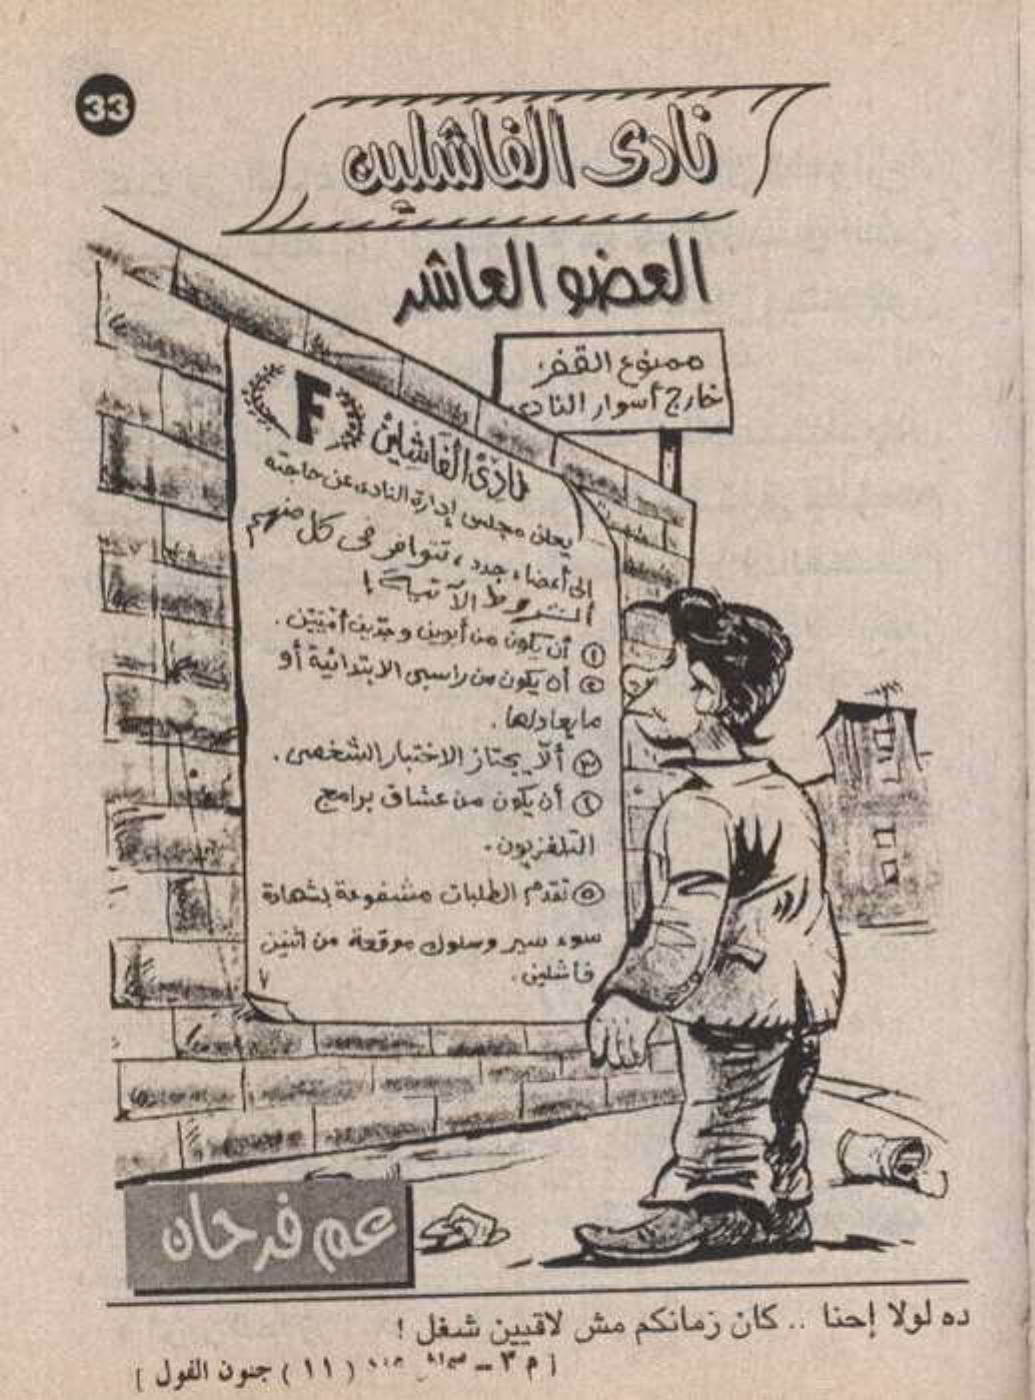 33
نادى الفاشلين
العضو العاشر
ممنوع القفز
خارج أسوار النادى
F
نادى الفاشلين
يعلن مجلس إدارة النادى عن حاجته
إلى أعضاء جدد ، تتوافر فى كل منهم
الشروط الآتية !
١ أن يكون من أبوين وجدين أميين .
٢ أن يكون من راسبى الابتدائية أو
ما يعادلها .
٣ ألا يجتاز الاختبار الشخصى .
٤ أن يكون من عشاق برامج
التلفزيون .
٥ تقدم الطلبات مشفوعة بشهادة
سوء سير وسلوك موقعة من اثنين
فاشلين .
عم فرحان
ده لولا إحنا .. كان زمانكم مش لاقيين شغل !
[ م ٣ ـ ( ١١ ) جنون الفول ]